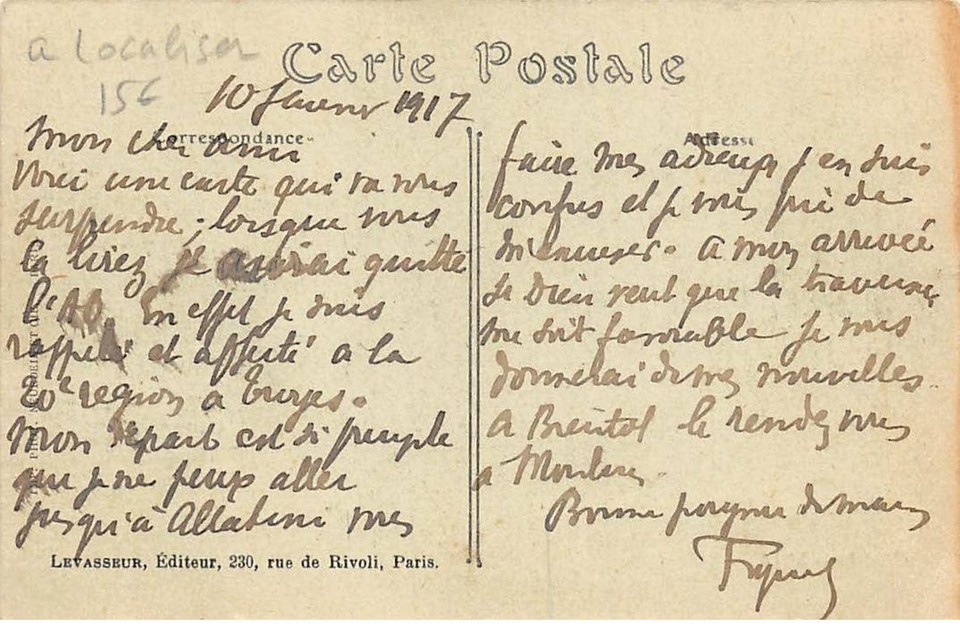 a localiser
156
Carte Postale
10 Janvier 1917
Correspondance
Mon cher ami
Voici une carte qui va vous
surprendre ; lorsque vous
la lirez je aurai quitté
l'AO. En effet je suis
rappelé et affecté à la
20e région à Troyes.
Mon départ est si
que je ne peux aller
jusqu'à Allatini vous
LEVASSEUR, Éditeur, 230, rue de Rivoli, Paris.
Adresse
faire mes adieux j'en suis
confus et je vous prie de
m'excuser. à mon arrivée
si Dieu veut que la traversée
me soit favorable je vous
donnerai de mes nouvelles.
A Bientot le rendez vous
à
Bonne poignée de main